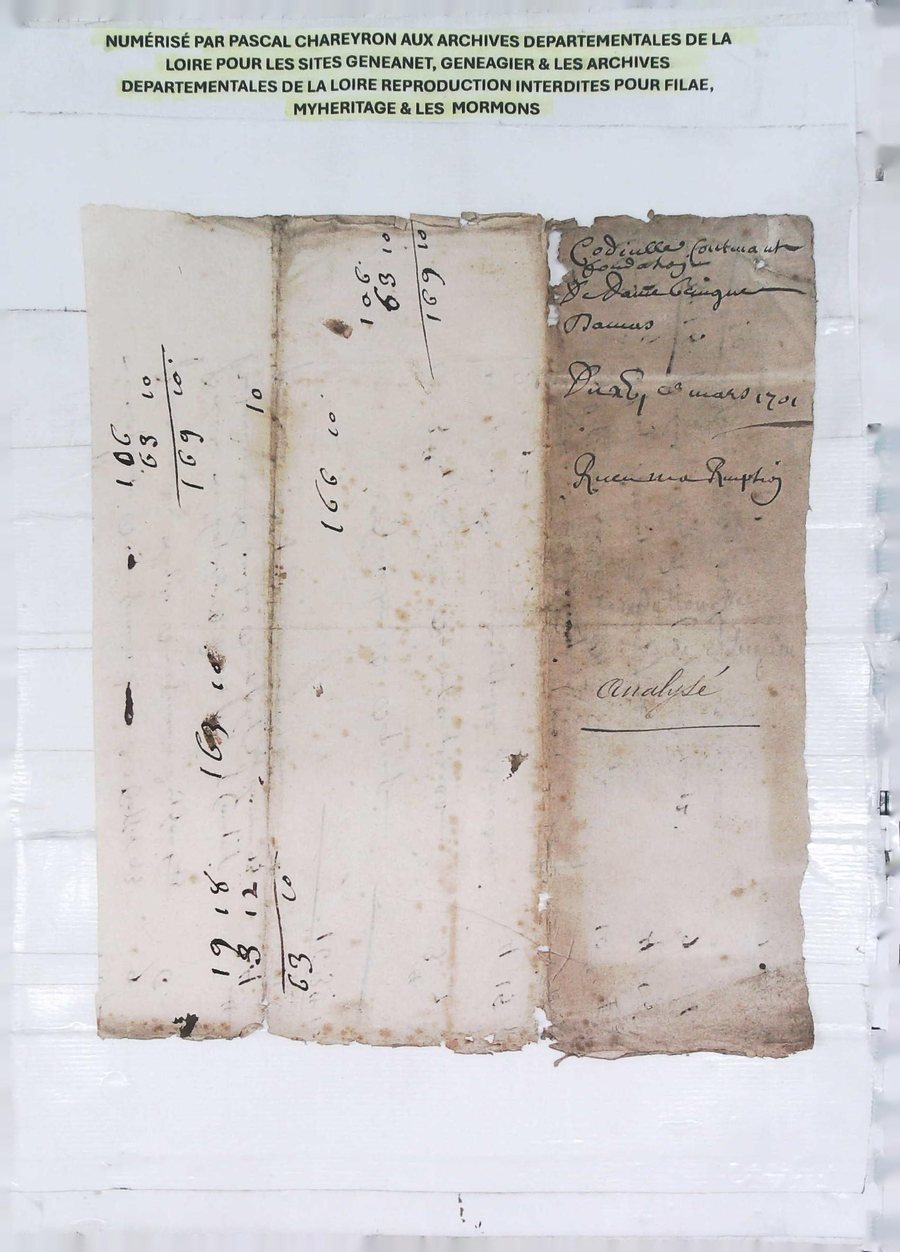 NUMÉRISÉ PAR PASCAL CHAREYRON AUX ARCHIVES DEPARTEMENTALES DE LA
LOIRE POUR LES SITES GENEANET, GENEAGIER & LES ARCHIVES
DEPARTEMENTALES DE LA LOIRE REPRODUCTION INTERDITES POUR FILAE,
MYHERITAGE & LES MORMONS
Codicille Contenant
De dame
Damas
mars 1701
analysé
106
63 10
169 10
106
63 10
169 10
10
166 10
169 10
19 18
12
63 10